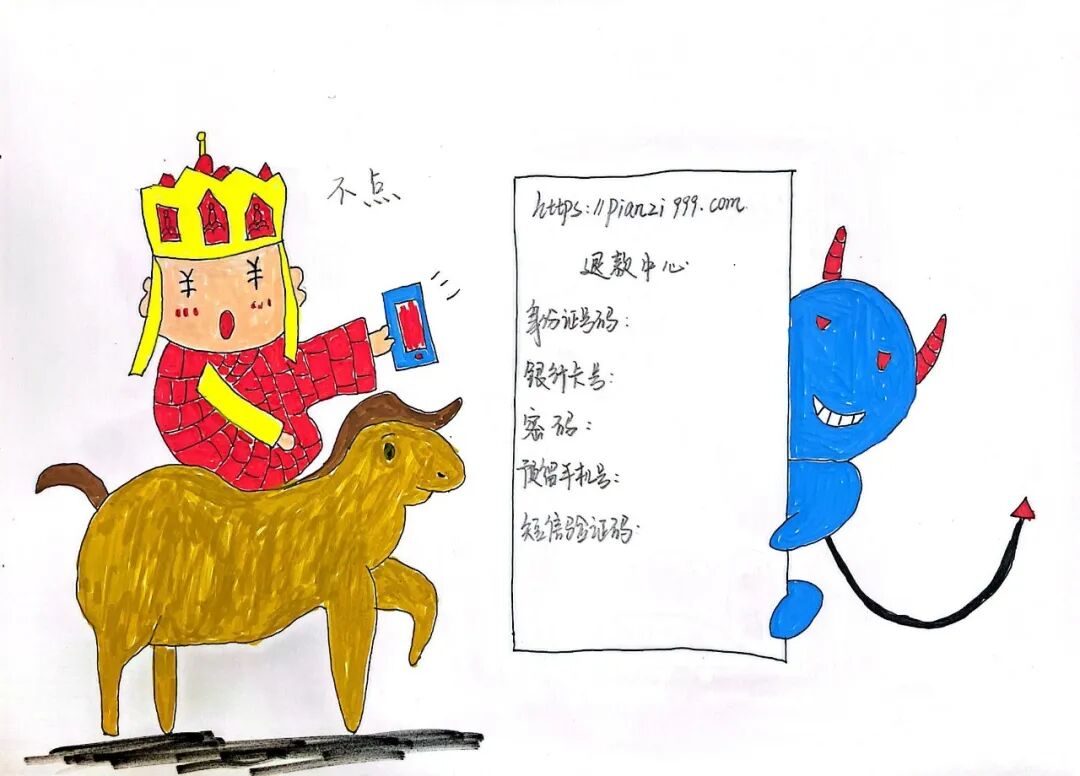 不点
https://pianzi999.com
退款中心
身份证号码:
银行卡号:
密码:
预留手机号:
短信验证码: